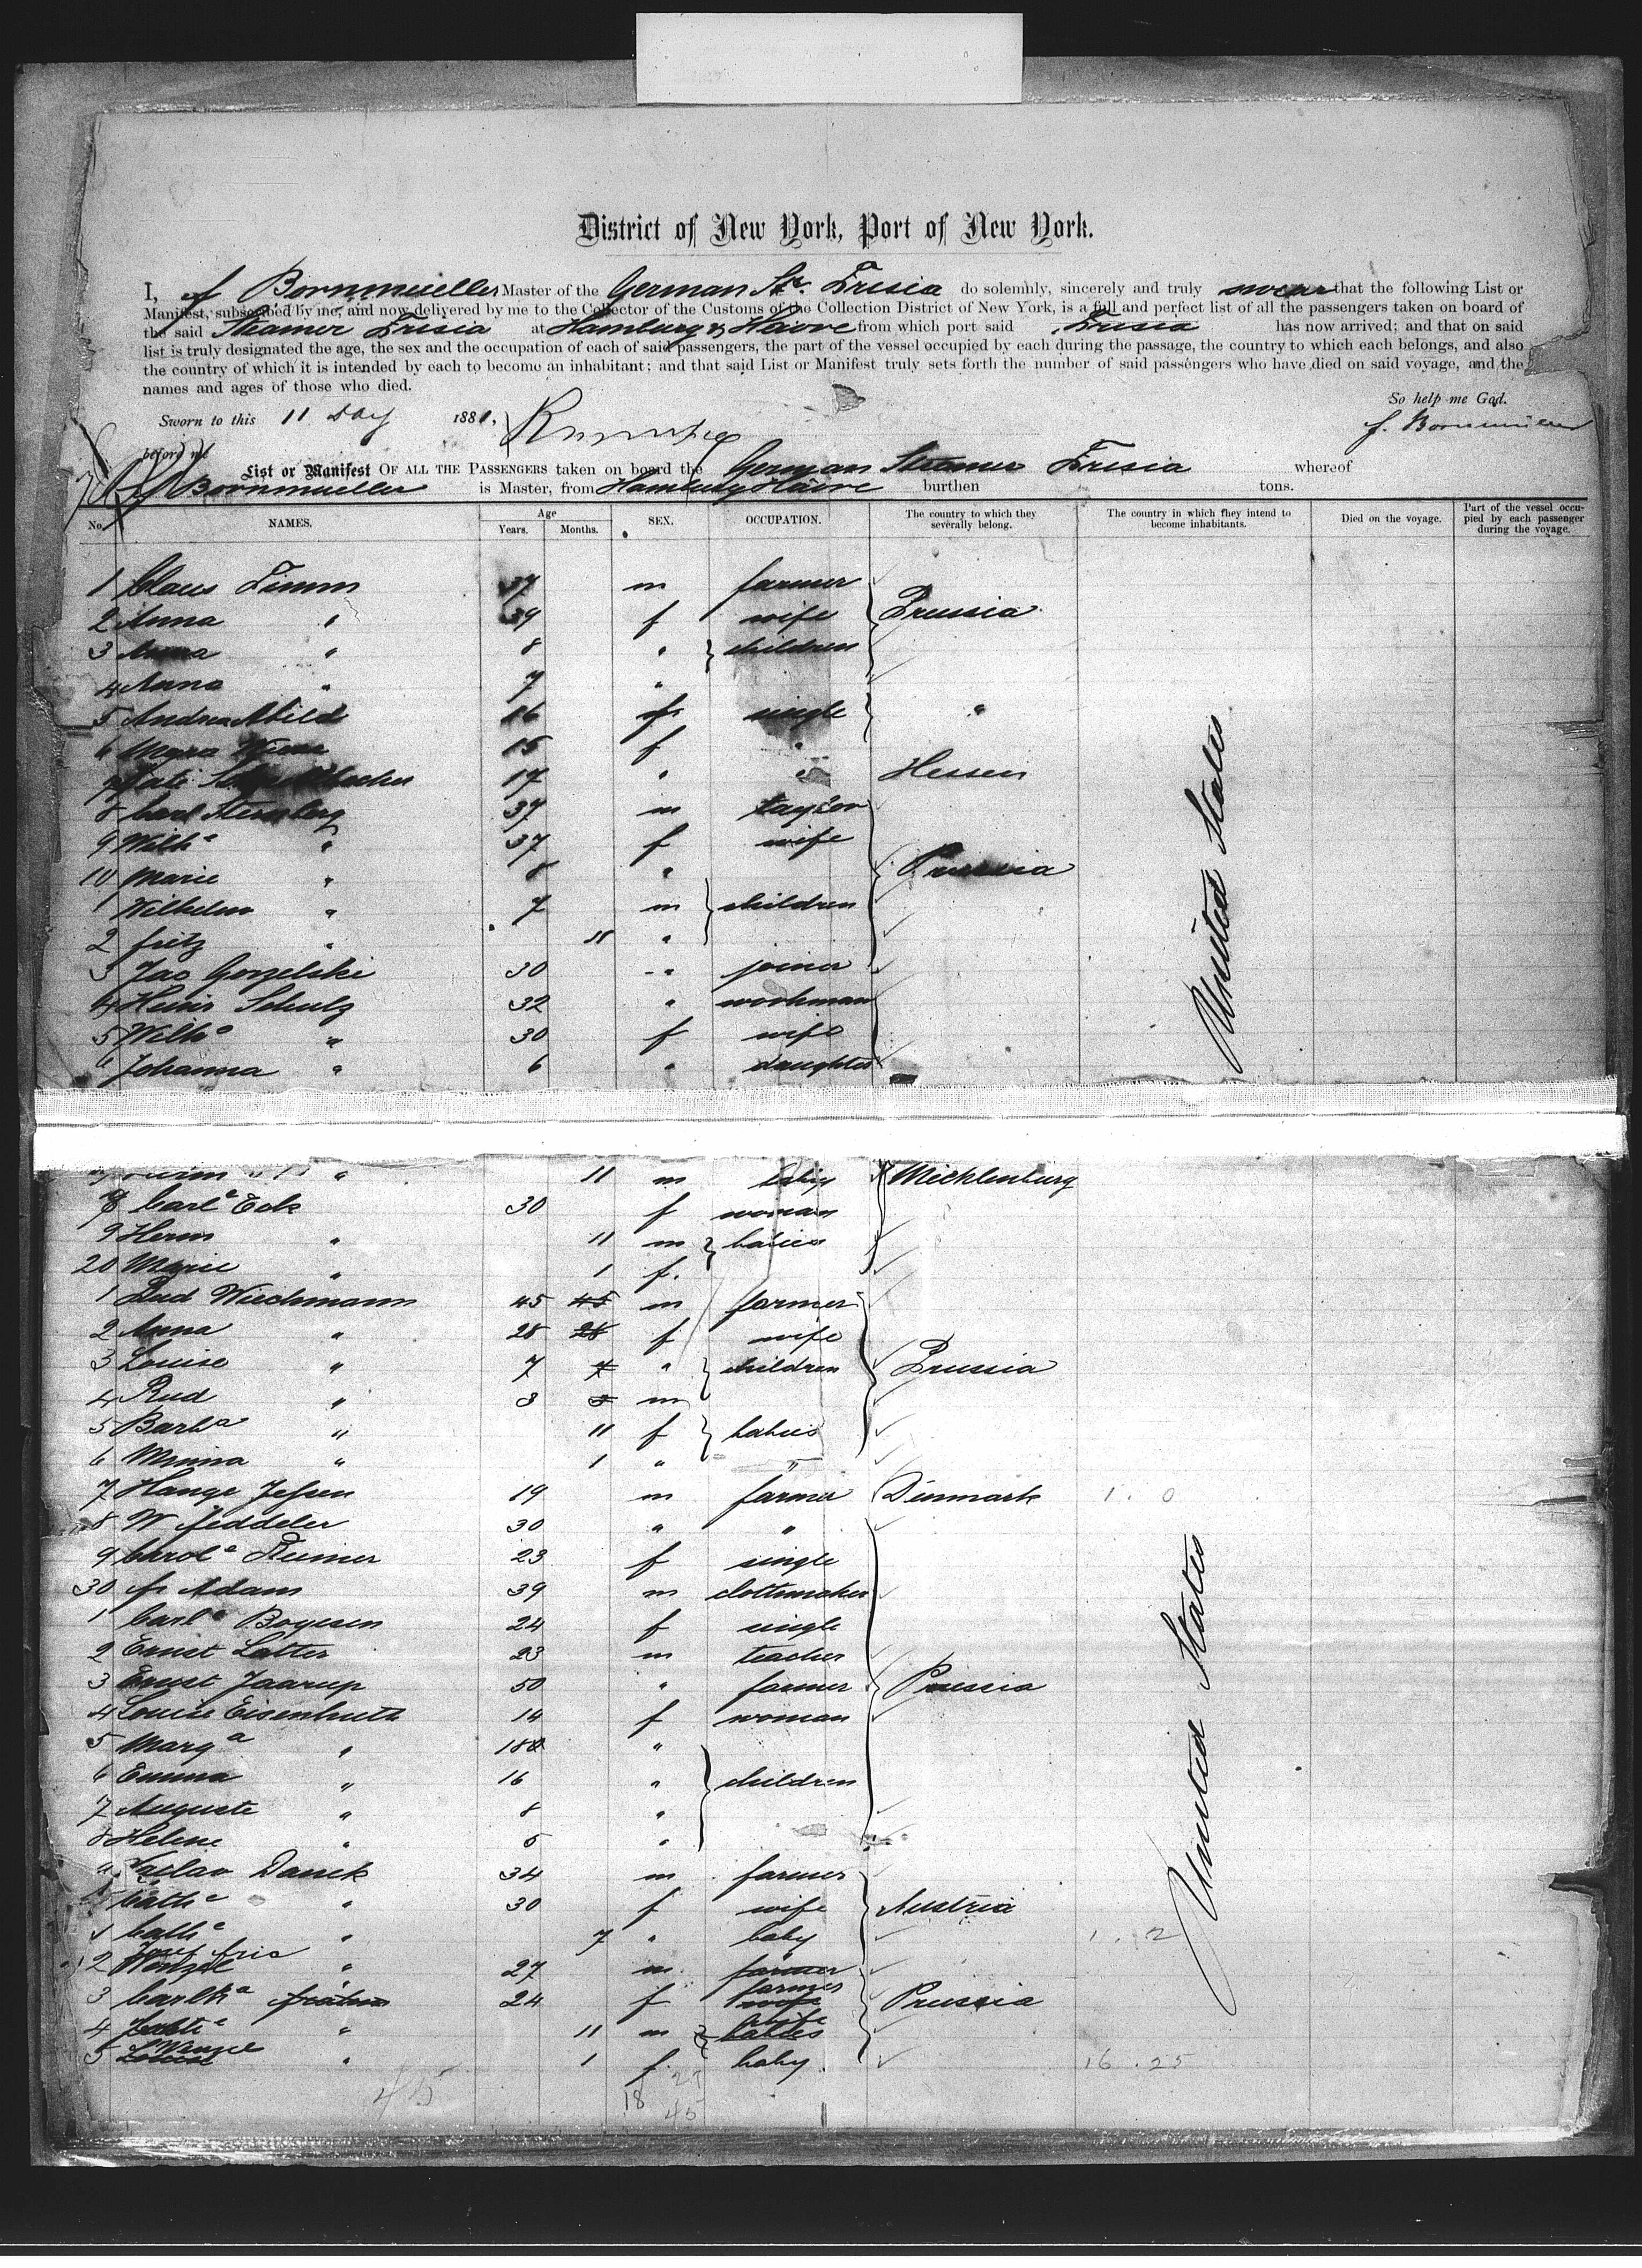 District of New York, Port of New York.
I, Bornmueller Master of the German Str. Frisia do solemnly, sincerely and truly swear that the following List or
Manifest, subscribed by me, and now delivered by me to the Collector of the Customs of the Collection District of New York, is a full and perfect list of all the passengers taken on board of
the said Steamer Frisia at Hamburg & Havre from which port said Frisia has now arrived; and that on said
list is truly designated the age, the sex and the occupation of each of said passengers, the part of the vessel occupied by each during the passage, the country to which each belongs, and also
the country of which it is intended by each to become an inhabitant; and that said List or Manifest truly sets forth the number of said passengers who have died on said voyage, and the
names and ages of those who died.
So help me God.
Sworn to this 11 Day 1881,
before me
List or Manifest OF ALL THE PASSENGERS taken on board the German Steamer Frisia whereof
Bornmueller is Master, from Hamburg Havre burthen tons.
No. NAMES. Age Years. Months. SEX. OCCUPATION. The country to which they severally belong. The country in which they intend to become inhabitants. Died on the voyage. Part of the vessel occupied by each passenger during the voyage.
1 Claus Timm 37 m farmer
2 Anna " 39 f wife Prussia
3 " 8 " children
4 Anna " 7 "
5 16 single "
6 15 f "
7 17 " " Hessen
8 Carl Sternberg 37 m
9 Wilh a " 37 f wife
10 Marie " 8 " Prussia
1 Wilhelm " 7 m children
2 fritz " 11 "
3 Jac Gorzelski 30 " joiner
4 Heinr Schulz 32 " workman
5 Wilh a " 30 f wife
6 Johanna " 6 " daughter
" 11 m baby Mecklenburg
8 Carl a Eck 30 f woman
9 Herm " 11 m babies
20 Marie " 1 f.
1 Rud Wiechmann 45 45 m farmer
2 Anna " 28 28 f wife
3 Louise " 7 7 " children Prussia
4 Rud " 3 3 m
5 Barb a " 11 f babies
6 Minna " 1 " "
7 Hange Jessen 19 m farmer Dänmark 1. 0
8 W feddeler 30 " "
9 Carol a Reimer 23 f single
30 fr Adam 39 m
1 Carl a Boyesen 24 f single
2 Ernst Latter 23 m teacher
3 Ernst Jaarup 50 " farmer Prussia
4 Louise Eisenhuth 14 f woman
5 Marg a " 18 "
6 Emma " 16 " children
7 Auguste " 8 "
8 Helene " 5 "
Vaclav Danek 34 m farmer
Cath a " 30 f wife Austria
1 Cath a " 7 " baby 1. 2
2 Wenzel " 27 m farmer
3 24 f farmer wife Prussia
4 " 11 m wife babies
5 Wenzel Louise " 1 f baby 16.25
United States
United States
45
18 27
45